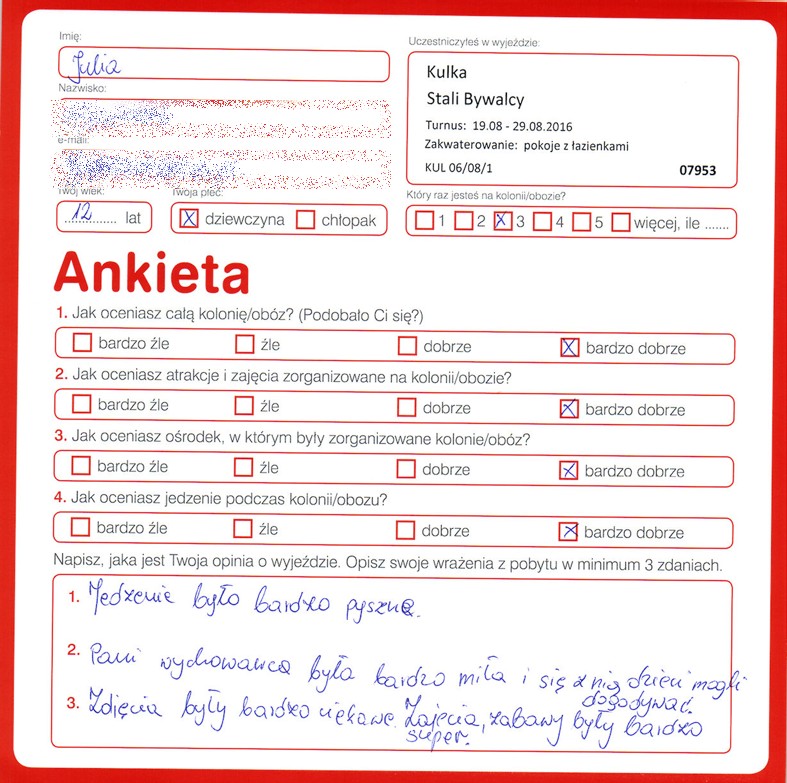 Imię:
Julia
Nazwisko:
e-mail:
Twój wiek:
12 lat
Twoja płeć:
dziewczyna chłopak
Uczestniczyłeś w wyjeździe:
Kulka
Stali Bywalcy
Turnus: 19.08 - 29.08.2016
Zakwaterowanie: pokoje z łazienkami
KUL 06/08/1 07953
Który raz jesteś na kolonii/obozie?
1 2 3 4 5 więcej, ile .......
Ankieta
1. Jak oceniasz całą kolonię/obóz? (Podobało Ci się?)
bardzo źle źle dobrze bardzo dobrze
2. Jak oceniasz atrakcje i zajęcia zorganizowane na kolonii/obozie?
bardzo źle źle dobrze bardzo dobrze
3. Jak oceniasz ośrodek, w którym były zorganizowane kolonie/obóz?
bardzo źle źle dobrze bardzo dobrze
4. Jak oceniasz jedzenie podczas kolonii/obozu?
bardzo źle źle dobrze bardzo dobrze
Napisz, jaka jest Twoja opinia o wyjeździe. Opisz swoje wrażenia z pobytu w minimum 3 zdaniach.
1. Jedzenie było bardzo pyszne.
2. Pani wychowawca była bardzo miła i się z nią dzieci mogli
dogadywać.
3. Zdjęcia były bardzo ciekawe. Zajęcia, zabawy były bardzo
super.